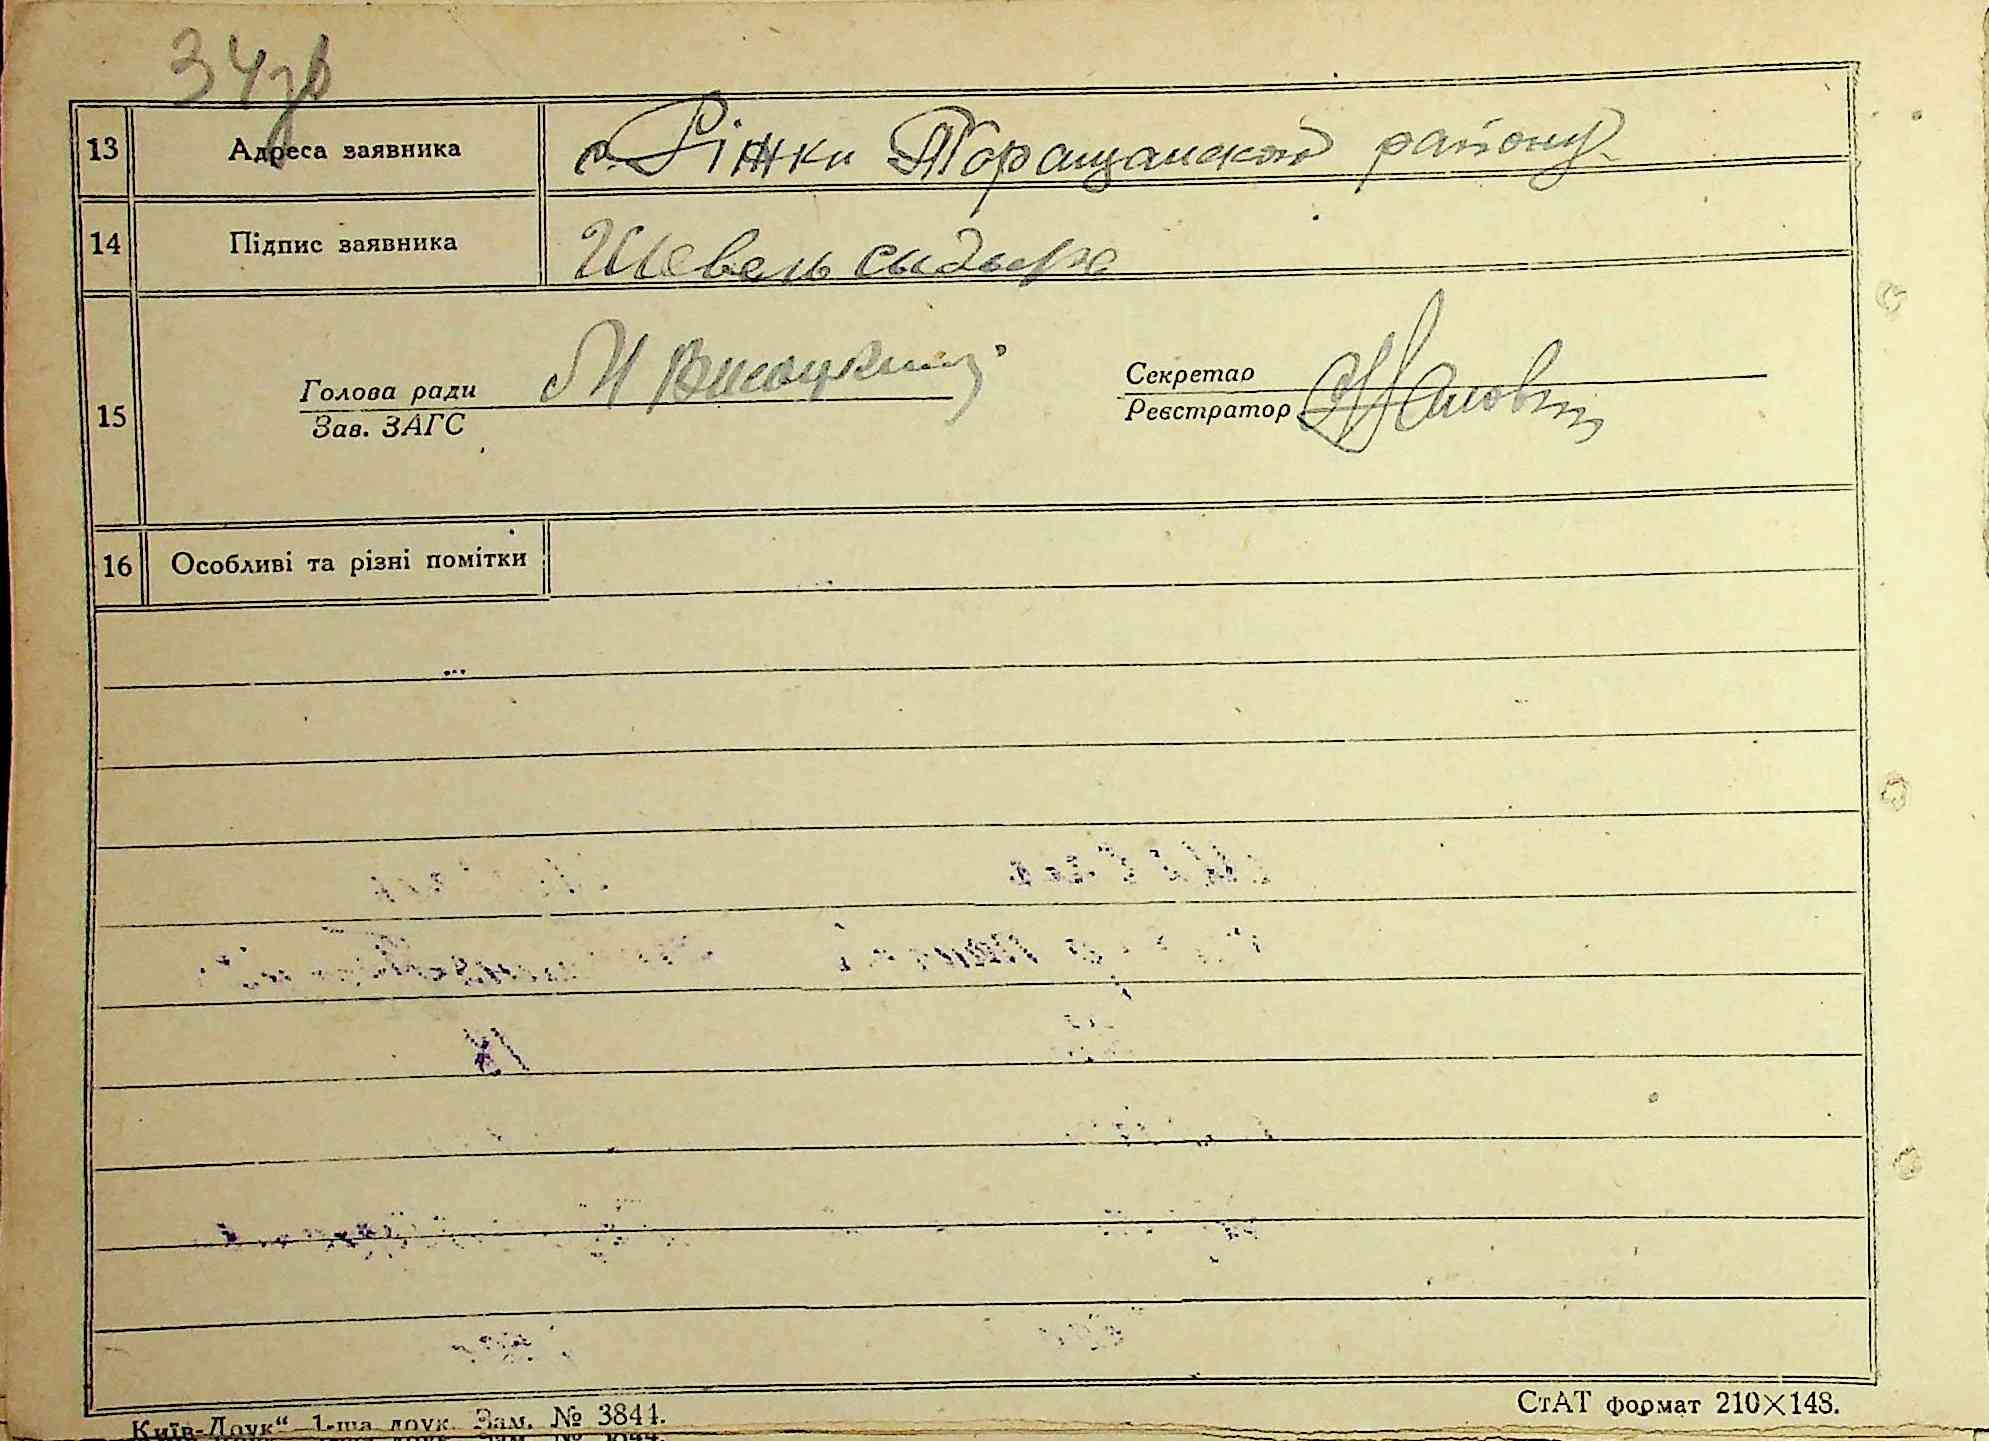 34зв
13 Адреса заявника с. Ріжки Таращанского району
14 Підпис заявника Шевель сыдырь
15 Голова ради М Висоцкий Секретар
Зав. ЗАГС Реєстратор
16 Особливі та різні помітки
Київ-Друк“ 1-ша друк. Зам. № 3844.
СтАТ формат 210×148.